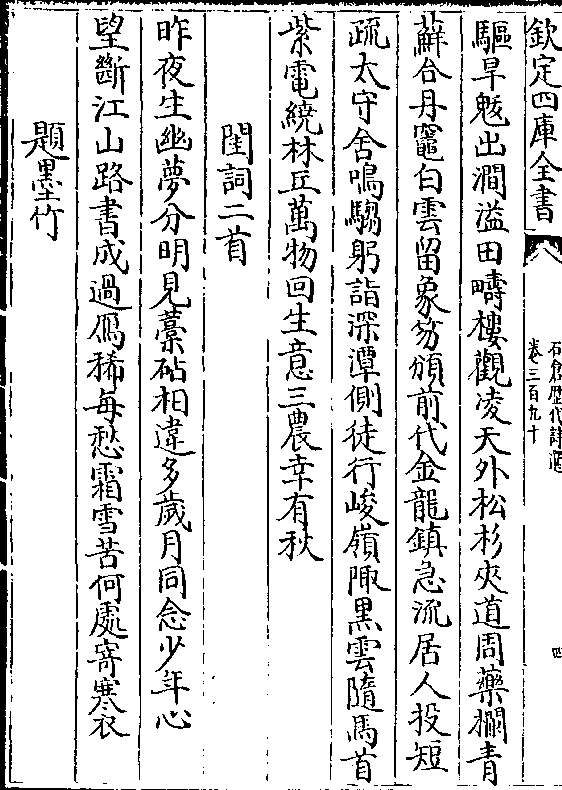 欽定四庫全書
石倉歴代詩選
卷三百九十
四
驅旱魃出澗溢田疇樓觀凌天外松杉夾道周藥欄青
蘚合丹竈白雲留象笏頒前代金龍鎮急流居人投短
疏太守舍鳴騶躬詣深潭側徒行峻嶺陬黒雲隨馬首
紫電繞林丘萬物回生意三農幸有秋
閨詞二首
昨夜生幽夢分明見藁砧相違多歲月同念少年心
望斷江山路書成過鴈稀每愁霜雪苦何處寄寒衣
題墨竹